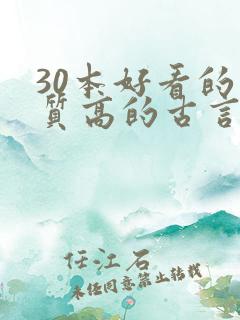 30本好看的
质高的古言
任江石
未经同意禁止转载